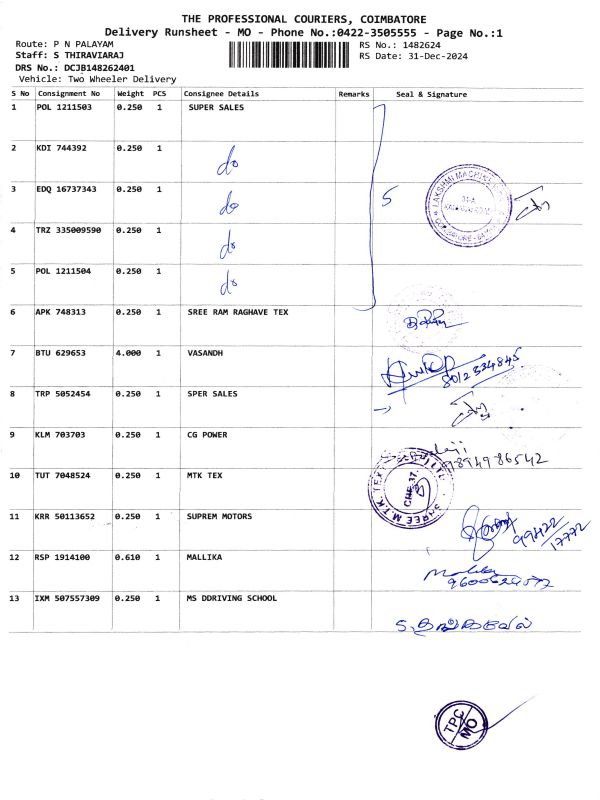 THE PROFESSIONAL COURIERS, COIMBATORE
Delivery Runsheet - MO - Phone No.:0422-3505555 - Page No.:1
Route: P N PALAYAM
RS No.: 1482624
Staff: S THIRAVIARAJ
RS Date: 31-Dec-2024
DRS No.: DCJB148262401
Vehicle: Two Wheeler Delivery
S No Consignment No Weight PCS Consignee Details Remarks Seal & Signature
1 POL 1211503 0.250 1 SUPER SALES
2 KDI 744392 0.250 1 do
3 EDQ 16737343 0.250 1 do 5
4 TRZ 335009590 0.250 1 do
5 POL 1211504 0.250 1 do
6 APK 748313 0.250 1 SREE RAM RAGHAVE TEX
7 BTU 629653 4.000 1 VASANDH 8012334845
8 TRP 5052454 0.250 1 SPER SALES
9 KLM 703703 0.250 1 CG POWER 9894986542
10 TUT 7048524 0.250 1 MTK TEX
11 KRR 50113652 0.250 1 SUPREM MOTORS 99422/17772
12 RSP 1914100 0.610 1 MALLIKA
13 IXM 507557309 0.250 1 MS DDRIVING SCHOOL
TPC
MO